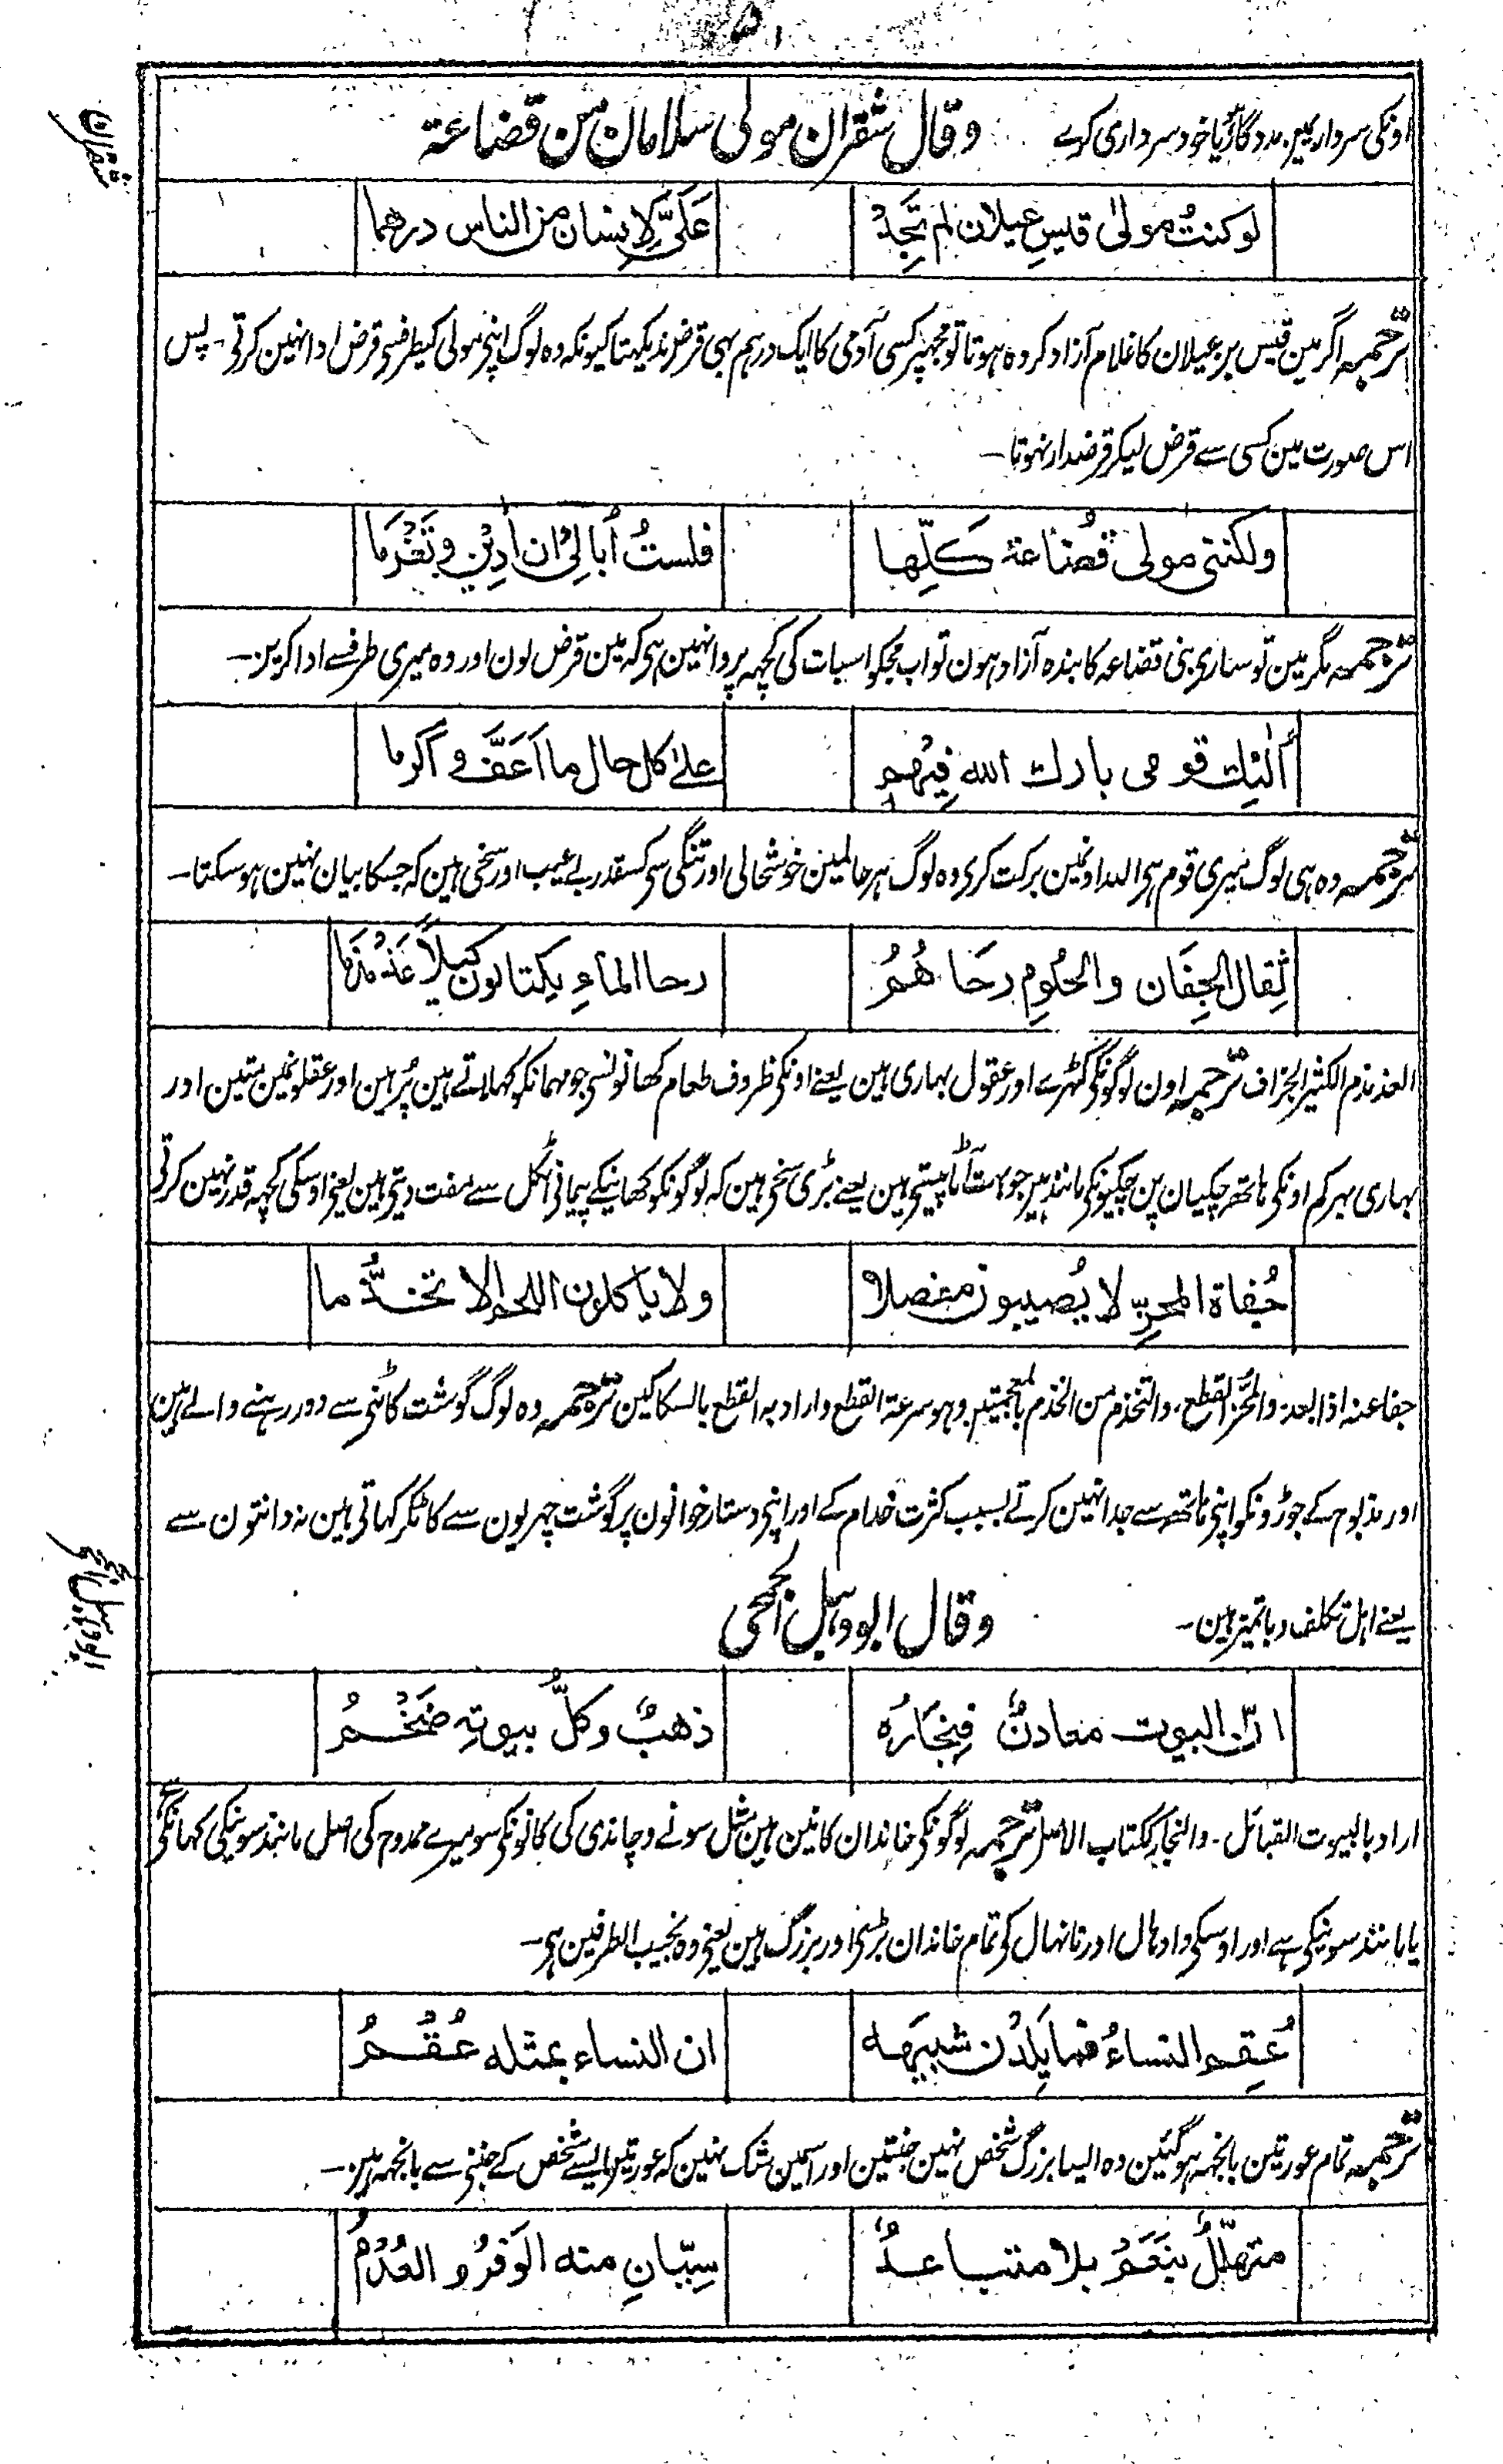 اونکی سرداریمین مددگار یا خود سرداری کرے وقال شقران مولی سلامان من قضاعة
شقران
لو کنتُ مولیٰ قیسِ عیلان لم تَجِدْ عَلَیَّ لِانسان من الناس درهما
ترجمہ اگر مین قیس بن عیلان کا غلام آزاد کردہ ہوتا تو مجہپر کسی آدمی کا ایک درہم بہی قرض ندیکہتا کیونکہ وہ لوگ اپنی مولی کیطرفسے قرض ادا نہین کرتی ۔ پس
اس صورت مین کسی سے قرض لیکر قرضدار نہوتا ۔
ولکننی مولی قُضاعة کلِّها فلستُ اُبالِیْ ان اَدِیْن و تَغْرَما
ترجمہ مگر مین تو ساری بنی قضاعہ کا بندہ آزاد ہون تو اب مجکو اسبات کی کچہہ پروا نہین ہی کہ مین قرض لون اور وہ میری طرفسے ادا کرین ۔
اُلٰئِك قومی بارك الله فِیْهِم علیٰ کل حال ما اَعَفَّ و اَکرما
ترجمہ وہ ہی لوگ میری قوم ہی اللہ اونمین برکت کری وہ لوگ ہر حالمین خوشحالی اور تنگی سی کسقدر بے عیب اور سخی ہین کہ جسکا بیان نہین ہوسکتا ۔
ثِقال الجِفَان والحُلُومِ رحَاهُمُ رحا الماءِ یکتالون کَیلًا غَذَمْذَما
الغذمذم الکثیر الجزاف ترجمہ اون لوگونکی کٹہرے اور عقول بہاری ہین یعنے اونکی ظروف طعام کھانونسی جو مہمانکو کہلاتے ہین پُر ہین اور عقلونمین متین اور
بہاری بہرکم اونکی ہاتھہ چکیان پن چکیونکی مانند ہین جو بہت آٹا پیستی ہین یعنے بڑی سخی ہین کہ لوگونکو کھانیکے پیمانی اٹکل سے مفت دیتی ہین یعنی اوسکی کچہہ قدر نہین کرتی
جُفاة المحزِّ لا یُصیبون مفصلا ولا یاکلون اللحم الا تخذُّما
جفا عنہ اذا بعد والمحَزّ القطع، والتخذم من الخذم بالمعجمتین وہو سرعة القطع واراد بہ القطع بالسکاکین ترجمہ وہ لوگ گوشت کاٹنی سے دور رہنے والے ہین
اور مذبوح کے جوڑونکو اپنی ہاتھہ سے جدا نہین کرتے بسبب کثرت خدام کے اور اپنی دستار خوانون پر گوشت چہریون سے کاٹکر کہاتی ہین نہ دانتون سے
یعنے اہل تکلف و باتمیز ہین ۔ وقال ابودہبل الجمحی
ابودہبل الجمحی
انّ البیوت معادنٌ فنِجَارُہ ذهبٌ وکلُّ بیوتِہ ضَخْمُ
اراد بالبیوت القبائل ۔ والنجار ککتاب الاصل ترجمہ لوگونکی خاندان کانین ہین مثل سونے وچاندی کی کانونکی سو میرے ممدوح کی اصل مانند سونیکی کہانکی
یا مانند سونیکی ہے اور اوسکی دادہال اور نانہال کی تمام خاندان بڑی اور بزرگ ہین یعنی وہ نجیب الطرفین ہی ۔
عُقِم النساءُ فما یَلِدْن شبیهہ ان النساء بمثله عُقْمُ
ترجمہ تمام عورتین بانجہہ ہوگئین وہ ایسا بزرگ شخص نہین جنتین اور اسمین شک نہین کہ عورتین ایسے شخص کے جننی سے بانجہہ ہین ۔
متهلّلٌ بنَعَمْ بلا متباعدٌ سِیّانِ منه الوَفرُ و العُدْمُ